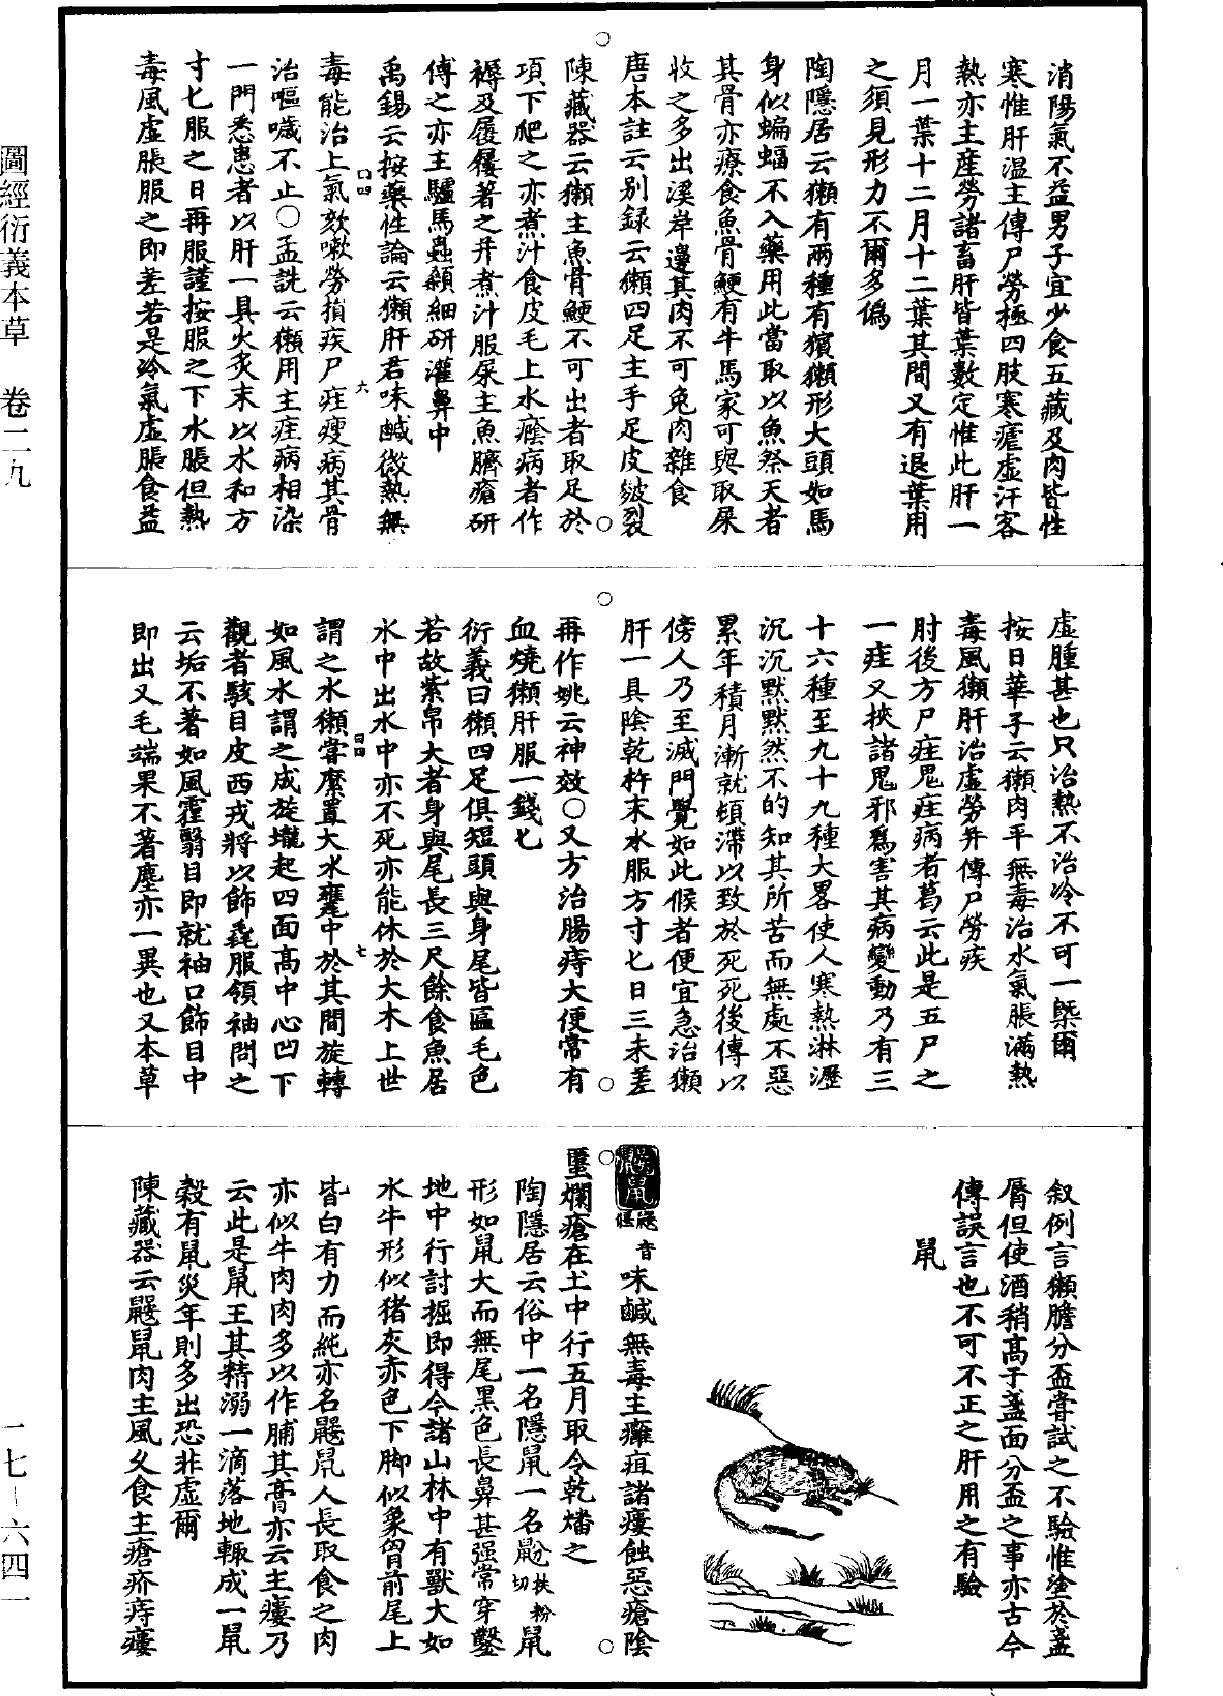 圖經衍義本草　卷二九
一七—六四一
消陽氣不益男子宜少食五藏及肉皆性
寒惟肝溫主傳尸勞極四肢寒瘧虛汗客
熱亦主産勞諸畜肝皆葉數定惟此肝一
月一葉十二月十二葉其間又有退葉用
之須見形力不爾多僞
陶隱居云獺有兩種有獱獺形大頭如馬
身似蝙蝠不入藥用此當取以魚祭天者
其骨亦療食魚骨鯁有牛馬家可與取屎
收之多出溪岸邊其肉不可兔肉雜食
唐本註云别録云獺四足主手足皮皴裂
陳藏器云獺主魚骨鯁不可出者取足於
項下爬之亦煮汁食皮毛上水癊病者作
褥及履屧著之并煮汁服屎主魚臍瘡研
傅之亦主驢馬蟲顙細研灌鼻中
禹錫云按藥性論云獺肝君味鹹微熱無
毒能治上氣欬嗽勞損疾尸疰瘦病其骨
治嘔噦不止○孟詵云獺用主疰病相染
一門悉患者以肝一具火炙末以水和方
寸七服之日再服謹按服之下水脹但熱
毒風虛脹服之即差若是冷氣虛脹食益
虛腫甚也只治熱不治冷不可一槩爾
按日華子云獺肉平無毒治水氣脹滿熱
毒風獺肝治虛勞并傳尸勞疾
肘後方尸疰鬼疰病者葛云此是五尸之
一疰又挾諸鬼邪爲害其病變動乃有三
十六種至九十九種大畧使人寒熱淋瀝
沉沉默默然不的知其所苦而無處不惡
累年積月漸就頓滯以致於死死後傳以
傍人乃至滅門覺如此候者便宜急治獺
肝一具陰乾杵末水服方寸七日三未差
再作姚云神效○又方治腸痔大便常有
血燒獺肝服一錢七
衍義曰獺四足俱短頭與身尾皆匾毛色
若故紫帛大者身與尾長三尺餘食魚居
水中出水中亦不死亦能休於大木上世
謂之水獺嘗縻置大水甕中於其間旋轉
如風水謂之成旋壠起四面高中心凹下
觀者駭目皮西戎將以飾毳服領袖問之
云垢不著如風霾翳目即就袖口飾目中
即出又毛端果不著塵亦一異也又本草
叙例言獺膽分盃嘗試之不驗惟塗於盞
脣但使酒稍高于盞面分盃之事亦古今
傳誤言也不可不正之肝用之有驗
鼠
鼹鼠音偃味鹹無毒主癰疽諸瘻蝕惡瘡陰
䘌爛瘡在土中行五月取令乾燔之
陶隱居云俗中一名隱鼠一名鼢扶粉切鼠
形如鼠大而無尾黑色長鼻甚强常穿鑿
地中行討掘即得今諸山林中有獸大如
水牛形似猪灰赤色下脚似象胷前尾上
皆白有力而純亦名鼹鼠人長取食之肉
亦似牛肉肉多以作脯其膏亦云主瘻乃
云此是鼠王其精溺一滴落地輒成一鼠
穀有鼠災年則多出恐非虛爾
陳藏器云鼹鼠肉主風久食主瘡疥痔瘻